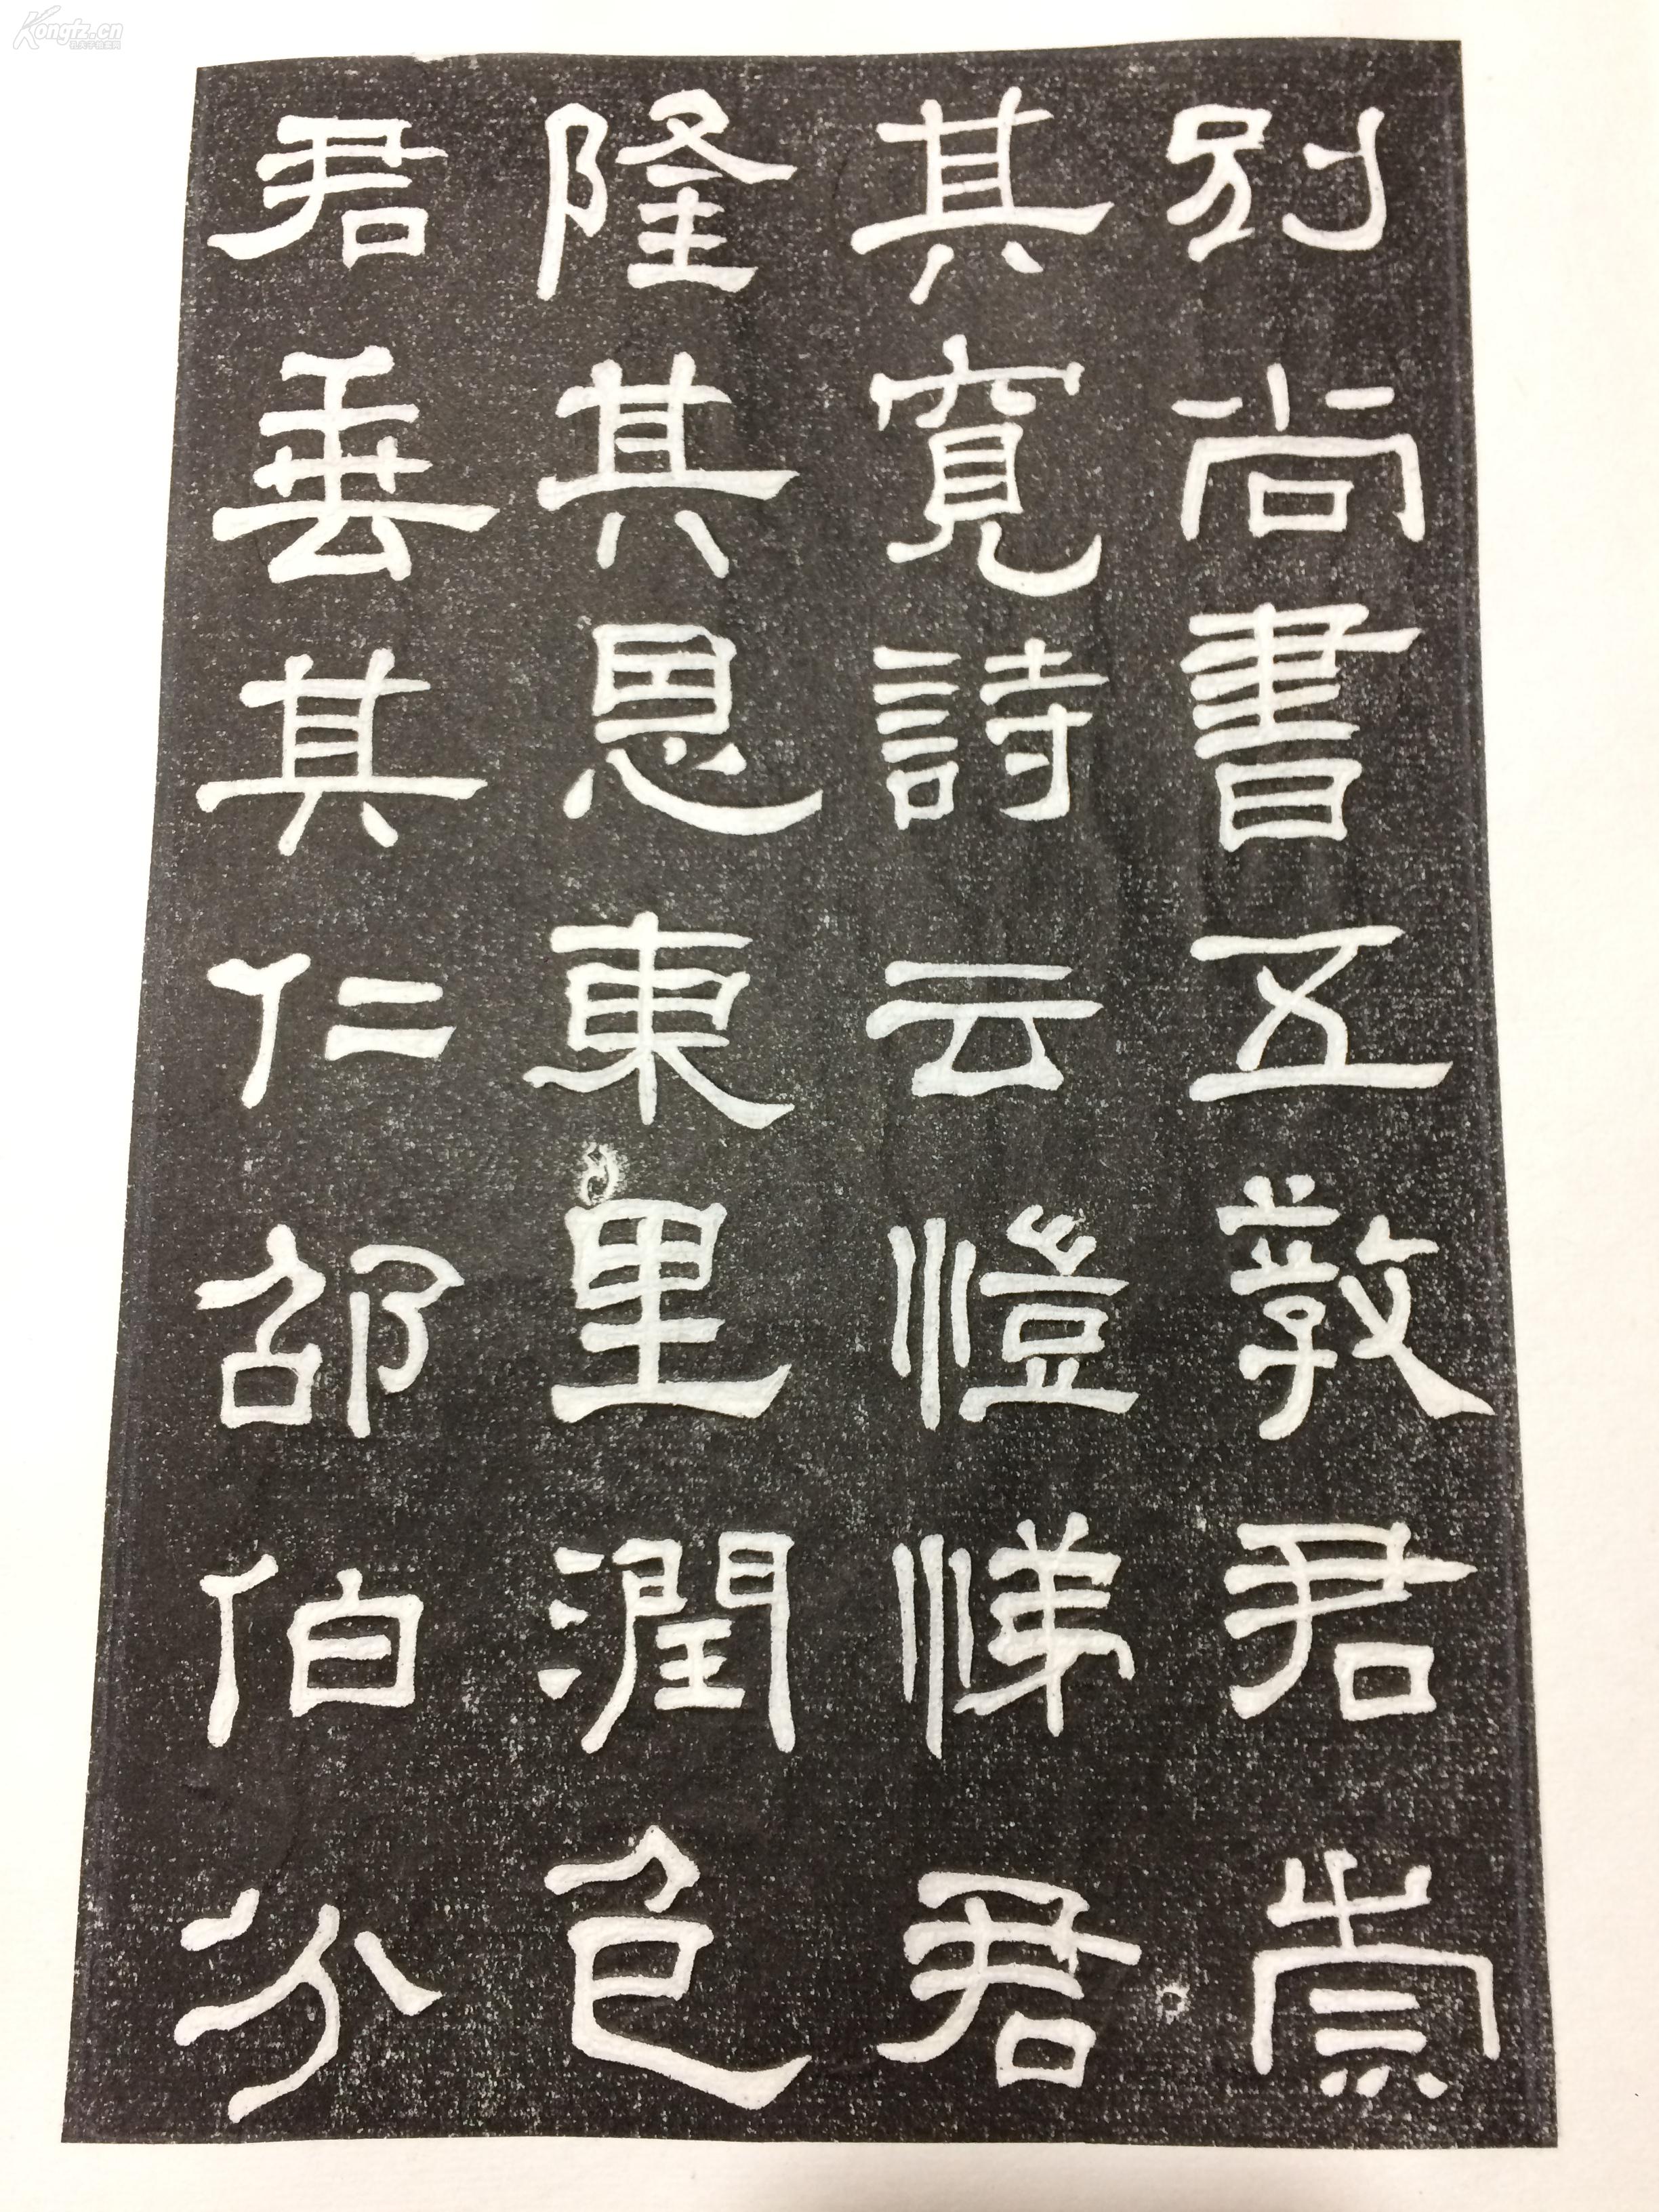 别尚書五教君崇
其寬詩云愷悌君
隆其恩東里潤色
君垂其仁邵伯分
Kongfz.cn